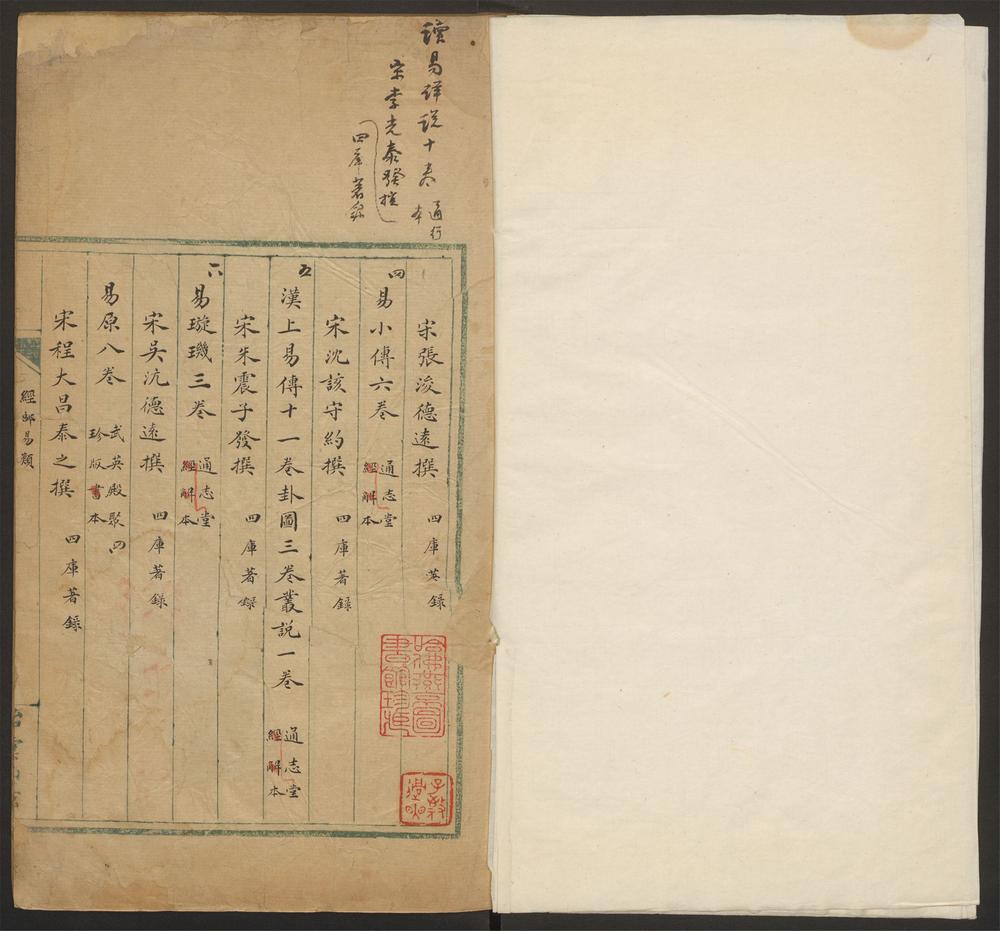 讀易詳說十卷 通行本
宋李光泰發撰
四庫著錄
宋張浚德遠撰 四庫著錄
四
易小傳六卷 通志堂經解本
宋沈該守約撰 四庫著録
五
漢上易傳十一卷卦圖三卷叢說一卷 通志堂經解本
宋朱震子發撰 四庫著録
六
易璇璣三卷 通志堂經解本
宋吳沆德遠撰 四庫著錄
易原八卷 武英殿聚珍版書本
宋程大昌泰之撰 四庫著錄
經部易類
哈佛燕京圖書館珍藏